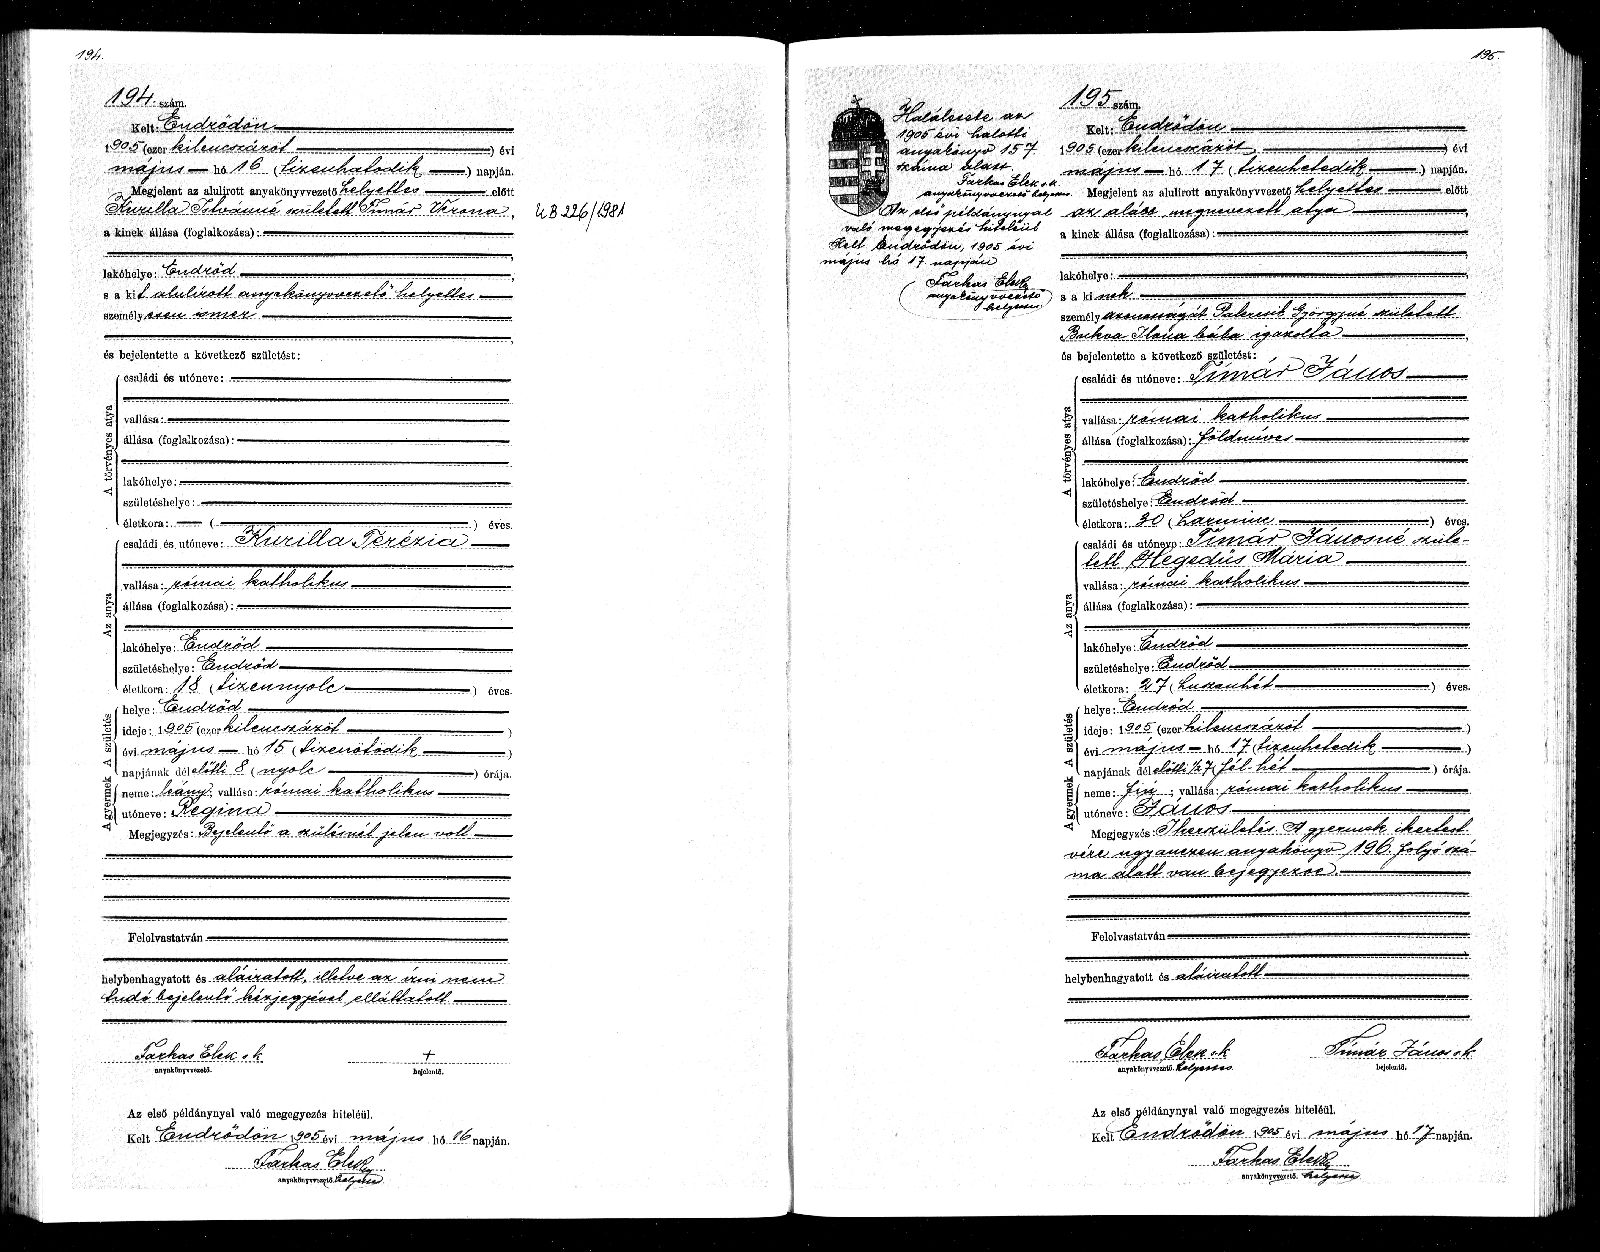 194.
194. szám.
Kelt: Endrődön
1905 (ezer kilencszázöt ) évi
május hó 16 (tizenhatodik ) napján.
Megjelent az alulirott anyakönyvvezető helyettes előtt
Kurilla Istvánné született Tímár Verona,
UB 226/1981
a kinek állása (foglalkozása):
lakóhelye: Endrőd
s a kit alulirott anyakönyvvezető helyettes
személyesen ismer
és bejelentette a következő születést:
A törvényes atya
családi és utóneve:
vallása:
állása (foglalkozása):
lakóhelye:
születéshelye:
életkora: ( ) éves.
Az anya
családi és utóneve: Kurilla Terézia
vallása: római katholikus
állása (foglalkozása):
lakóhelye: Endrőd
születéshelye: Endrőd
életkora: 18 (tizennyolc ) éves.
A születés
helye: Endrőd
ideje: 1905 (ezer kilencszázöt )
évi május hó 15 (tizenötödik )
napjának délelőtti 8 (nyolc ) órája.
A gyermek
neme: leány; vallása: római katholikus
utóneve: Regina
Megjegyzés: Bejelentő a szülésnél jelen volt
Felolvastatván
helybenhagyatott és aláiratott, illetve az írni nem
tudó bejelentő kézjegyével elláttatott
Farkas Elek s k +
anyakönyvvezető. bejelentő.
Az első példánynyal való megegyezés hiteléül.
Kelt Endrődön 1905 évi május hó 16 napján.
Farkas Elek
anyakönyvvezető. helyettes
195.
Haláleste az
1905 évi halotti
anyakönyv 157
száma alatt
Farkas Elek s. k.
anyakönyvvezető helyettes
Az első példánynyal
való megegyezés hiteléül
Kelt Endrődön, 1905 évi
május hó 17 napján
Farkas Elek
anyakönyvvezető
helyettes
195 szám.
Kelt: Endrődön
1905 (ezer kilencszázöt ) évi
május hó 17 (tizenhetedik ) napján.
Megjelent az alulirott anyakönyvvezető helyettes előtt
az alább megnevezett atya
a kinek állása (foglalkozása):
lakóhelye:
s a kinek
személyazonosságát Györgyné született
Ilona bába igazolta
és bejelentette a következő születést:
A törvényes atya
családi és utóneve: Tímár János
vallása: római katholikus
állása (foglalkozása): földmíves
lakóhelye: Endrőd
születéshelye: Endrőd
életkora: 30 (harminc ) éves.
Az anya
családi és utóneve: Tímár Jánosné szüle-
tett Hegedüs Mária
vallása: római katholikus
állása (foglalkozása):
lakóhelye: Endrőd
születéshelye: Endrőd
életkora: 27 (huszonhét ) éves.
A születés
helye: Endrőd
ideje: 1905 (ezer kilencszázöt )
évi május hó 17 (tizenhetedik )
napjának délelőtti 1/2 7 (fél hét ) órája.
A gyermek
neme: fiú; vallása: római katholikus
utóneve: János
Megjegyzés: Ikerszületés. A gyermek ikertest-
vére ugyanezen anyakönyv 196. folyó szá-
ma alatt van bejegyezve.
Felolvastatván
helybenhagyatott és aláiratott
Farkas Elek s k Tímár János s k
anyakönyvvezető. helyettes bejelentő.
Az első példánynyal való megegyezés hiteléül.
Kelt Endrődön 1905 évi május hó 17 napján.
Farkas Elek
anyakönyvvezető. helyettes